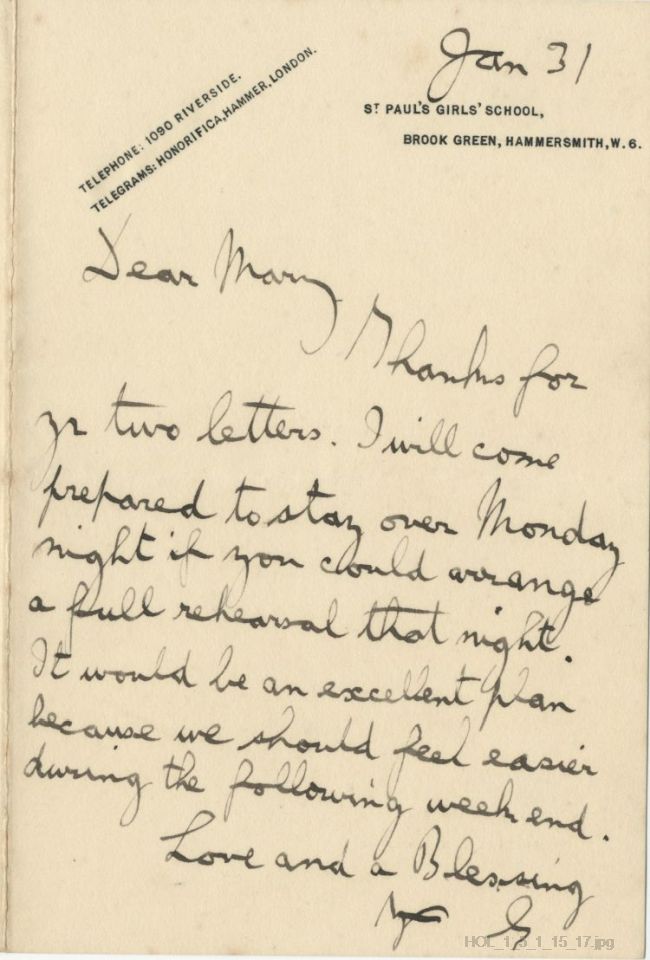 Jan 31
TELEPHONE: 1090 RIVERSIDE.
TELEGRAMS: HONORIFICA, HAMMER, LONDON.
ST PAUL'S GIRLS' SCHOOL,
BROOK GREEN, HAMMERSMITH, W. 6.
Dear Mary
Thanks for
yr two letters. I will come
prepared to stay over Monday
night if you could arrange
a full rehearsal that night.
It would be an excellent plan
because we should feel easier
during the following week end.
Love and a Blessing
G
HOL_1_3_1_15_17.jpg